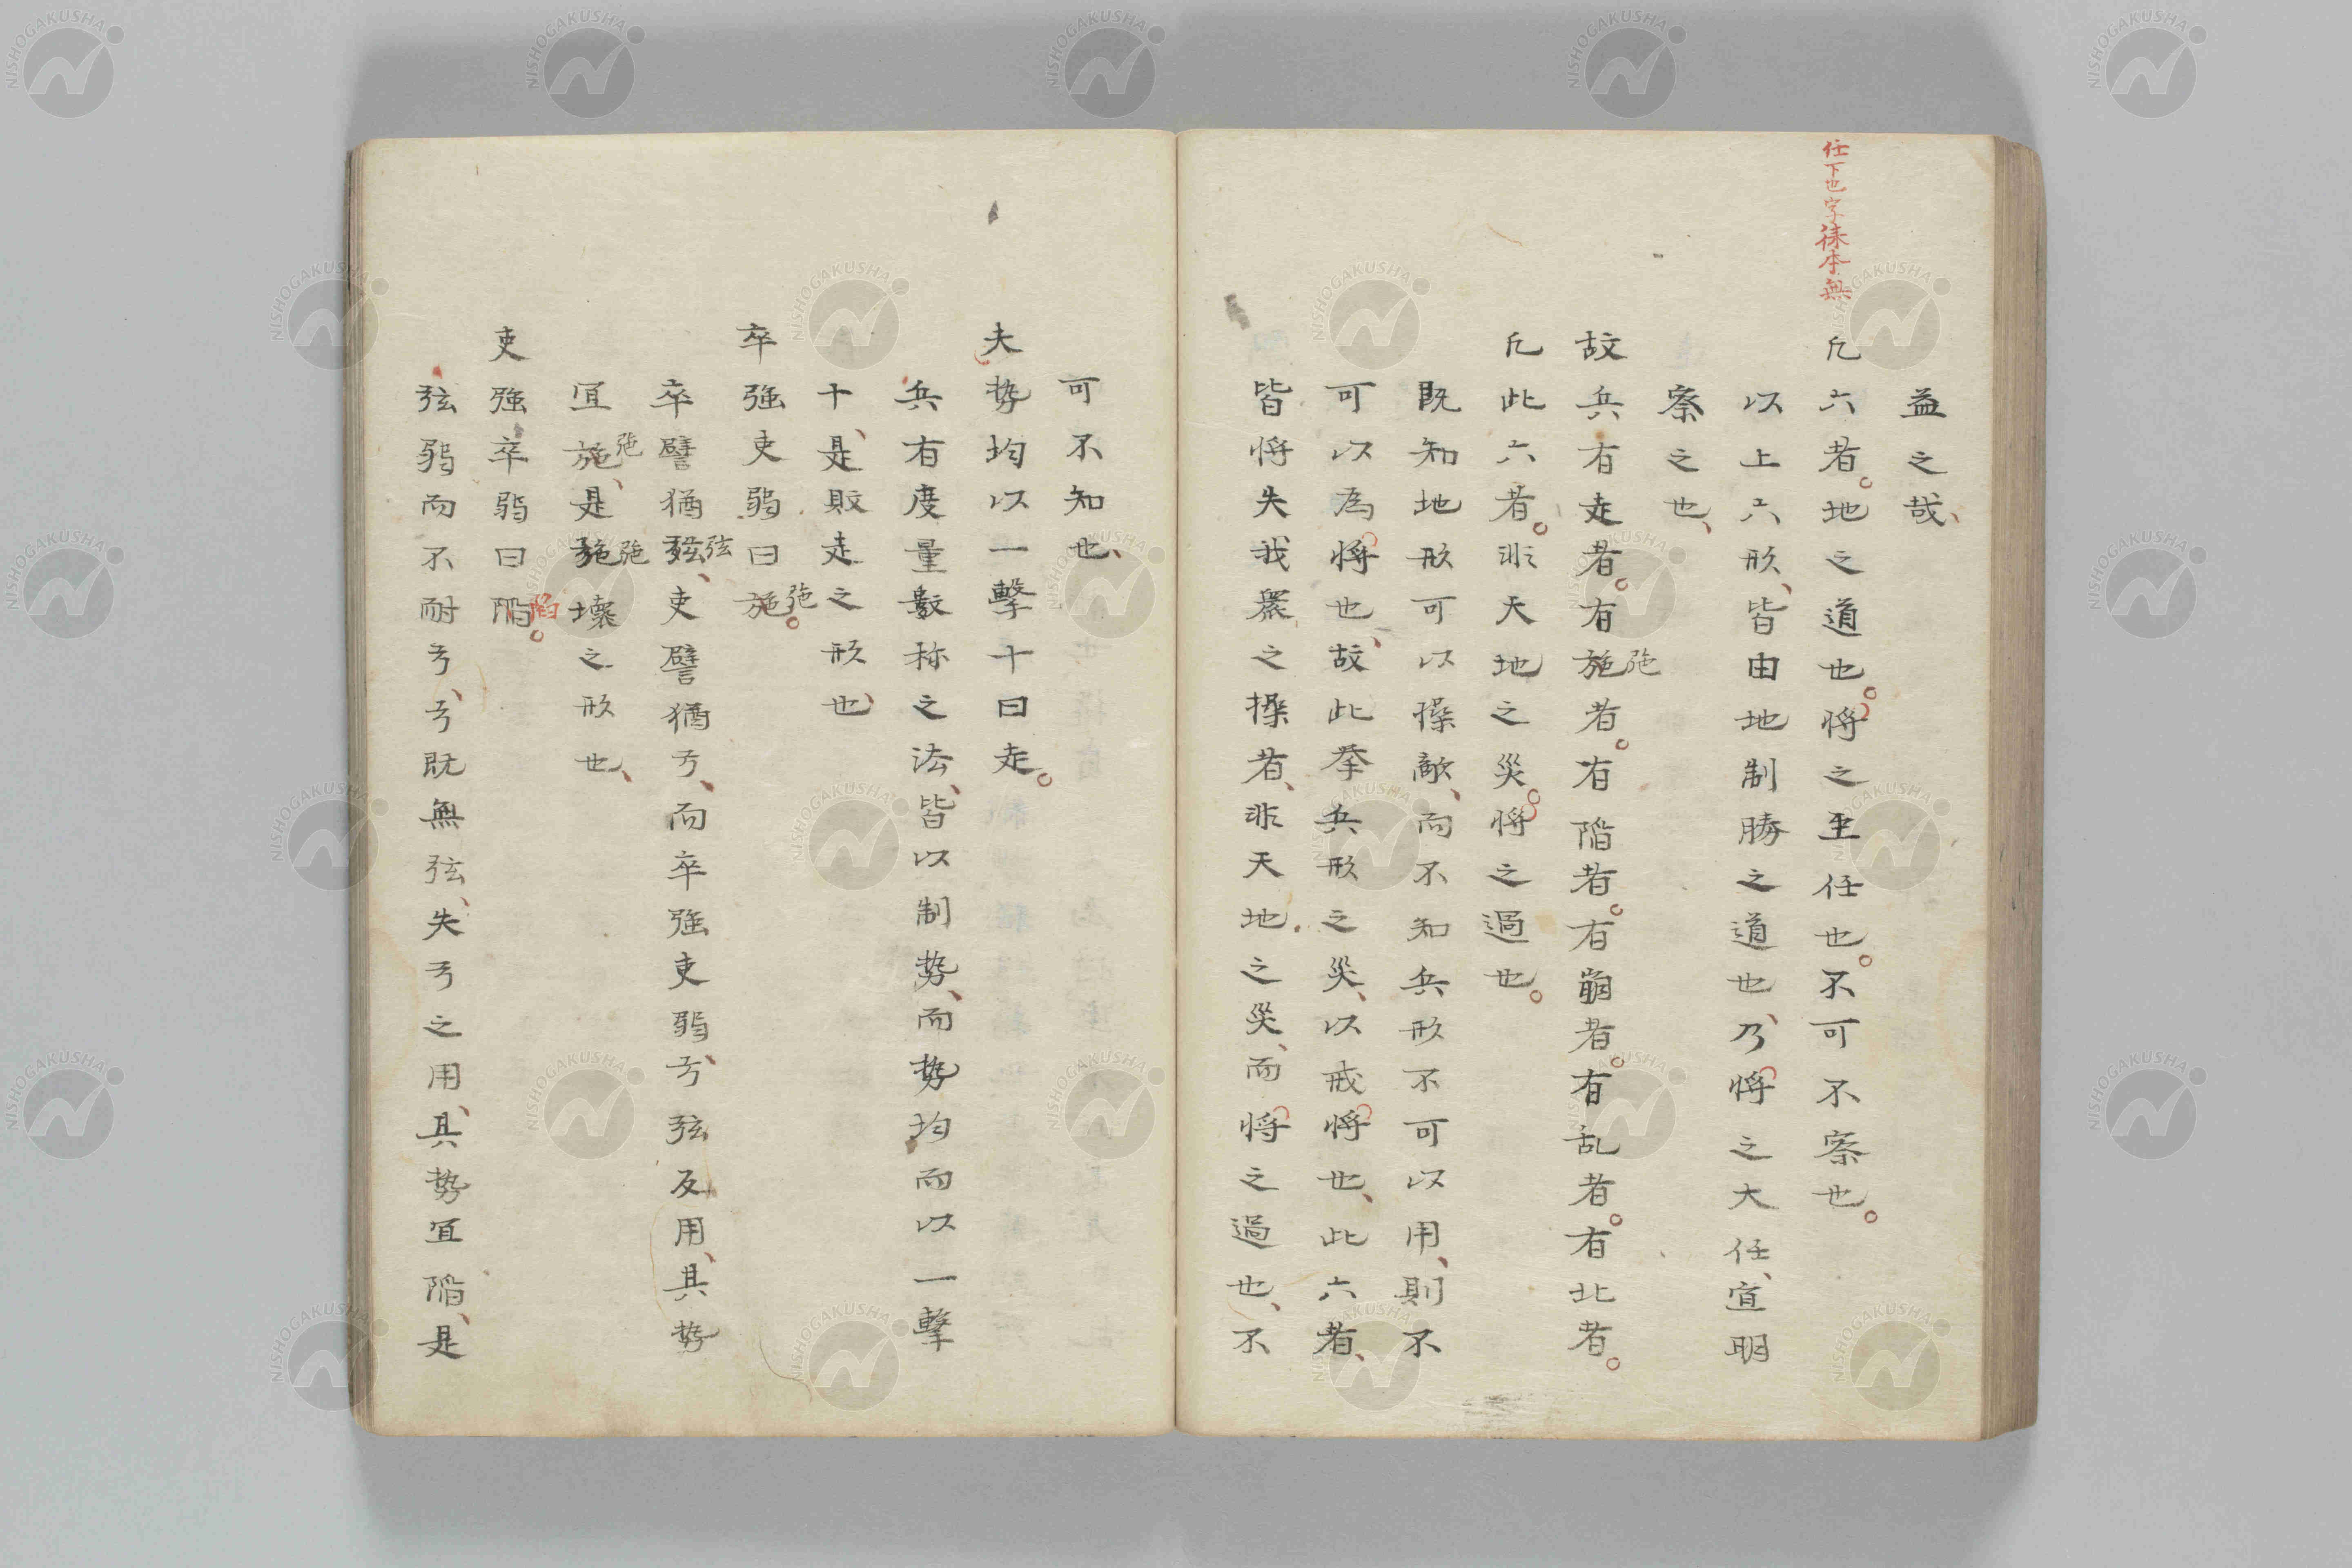 任下也字徠本無
益之哉、
凢六者。地之道也。將之至任也。不可不察也。
以上六形、皆由地制勝之道也、乃將之大任、宜明
察之也、
故兵有走者。有施弛者。有陷者。有崩者。有乱者。有北者。
凢此六者。非天地之災。將之過也。
既知地形可以操敵、而不知兵形不可以用、則不
可以為將也、故此挙兵形之災、以戒將也、此六者、
皆將失我衆之操者、非天地之災、而將之過也、不
可不知也、
夫勢均以一擊十曰走。
兵有度量數称之法、皆以制勢、而勢均而以一擊
十、是敗走之形也、
卒強吏弱曰施弛。
卒譬猶弦、吏譬猶弓、而卒強吏弱弓、弦反用、其勢
宜施弛、是弛弛壞之形也、
吏強卒弱曰陷陷。
弦弱而不耐弓、弓既無弦、失弓之用、其勢宜陷、是
NISHOGAKUSHA